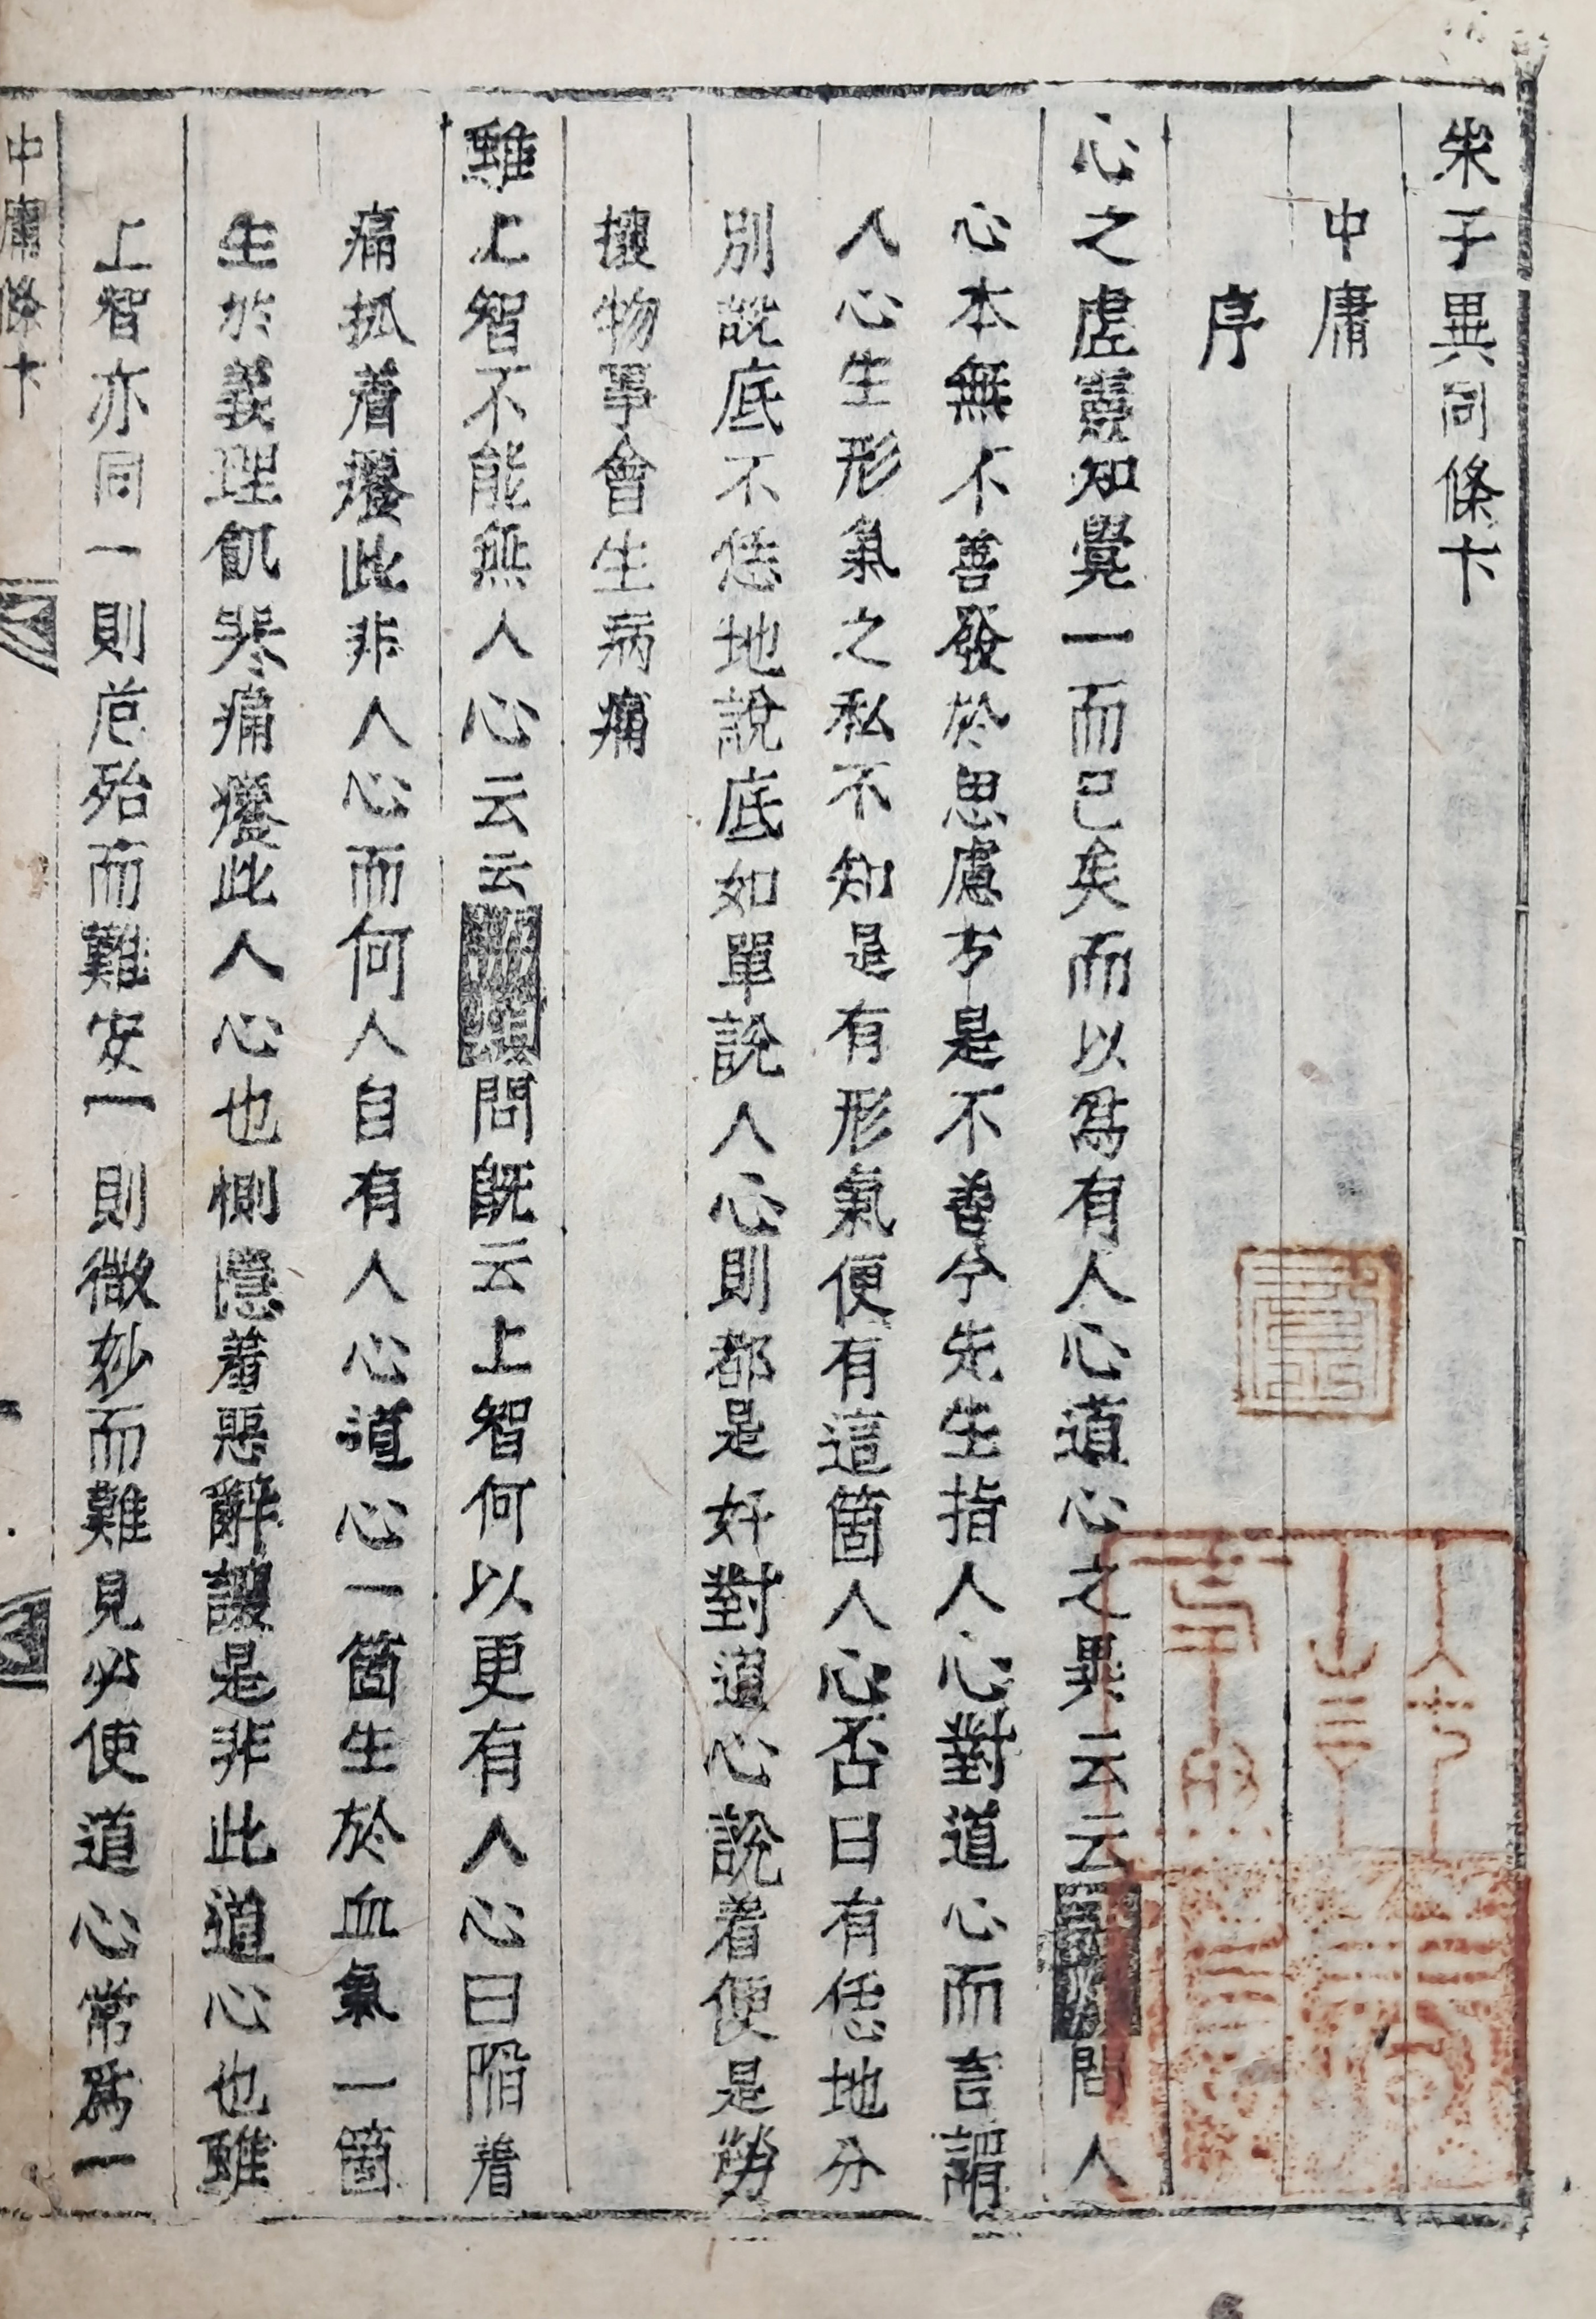 朱子異同條卞
中庸
序
心之虛靈知覺一而已矣而以爲有人心道心之異云云問人
心本無不善發於思慮方是不善今先生指人心對道心而言謂
人心生形氣之私不知是有形氣便有這箇人心否曰有恁地分
別說底不恁地說底如單說人心則都是好對道心說着便是勞
攘物事會生病痛
雖上智不能無人心云云問旣云上智何以更有人心曰陷着
痛抓着癢此非人心而何人自有人心道心一箇生於血氣一箇
生於義理飢寒痛癢此人心也惻隱羞惡辭讓是非此道心也雖
上智亦同一則危殆而難安一則微妙而難見必使道心常爲一
中庸條卞